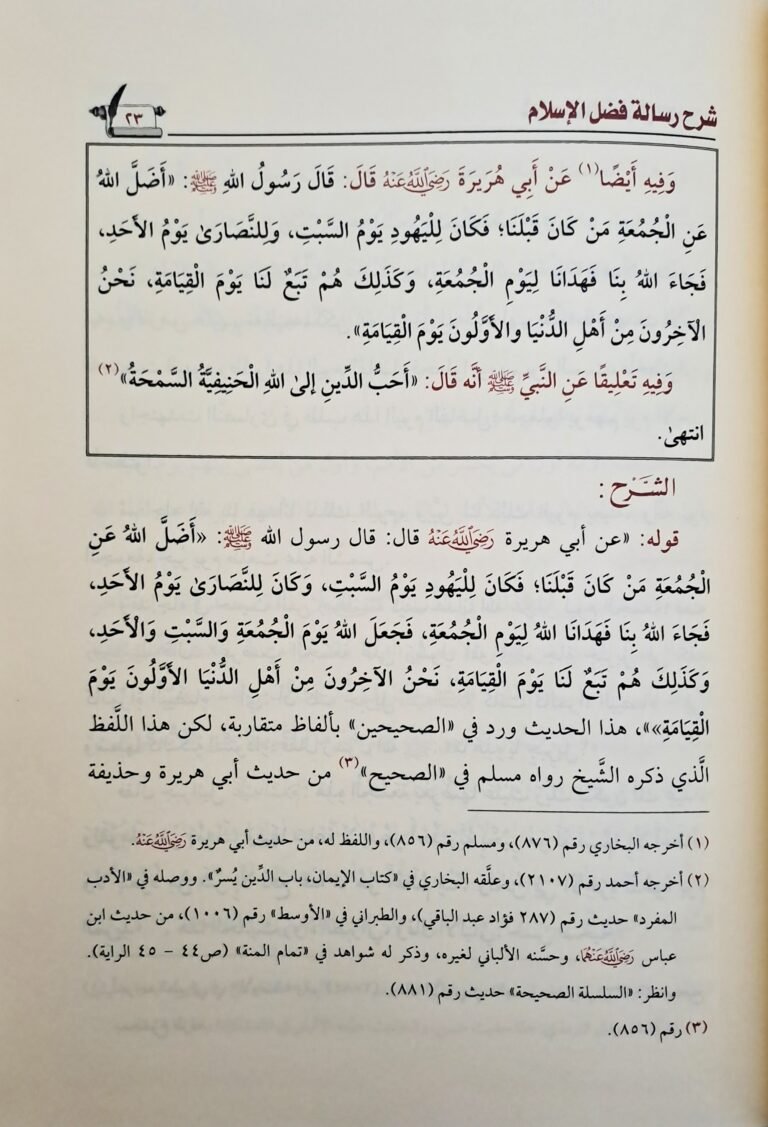 شرح رسالة فضل الإسلام
٢٣
وَفِيهِ أَيْضًا(١) عَنْ أَبِي هُرَيرَةَ رَضِيَ اللَّهُ عَنْهُ قَالَ: قَالَ رَسُولُ اللهِ ﷺ: «أَضَلَّ اللهُ
عَنِ الْجُمُعَةِ مَنْ كَانَ قَبْلَنَا؛ فَكَانَ لِلْيَهُودِ يَوْمُ السَّبْتِ، وَلِلنَّصَارَىٰ يَوْمُ الأَحَدِ،
فَجَاءَ اللهُ بِنَا فَهَدَانَا لِيَوْمِ الْجُمُعَةِ، وَكَذَلِكَ هُمْ تَبَعٌ لَنَا يَوْمَ الْقِيَامَةِ، نَحْنُ
الْآخِرُونَ مِنْ أَهْلِ الدُّنْيَا والأَوَّلُونَ يَوْمَ الْقِيَامَةِ».
وَفِيهِ تَعْلِيقًا عَنِ النَّبِيِّ ﷺ أَنَّه قَالَ: «أَحَبُّ الدِّينِ إلىٰ اللهِ الْحَنِيفِيَّةُ السَّمْحَةُ»(٢)
انتهىٰ.
الشَّرْح:
قوله: «عن أبي هريرة رَضِيَ اللَّهُ عَنْهُ قال: قال رسول الله ﷺ: «أَضَلَّ اللهُ عَنِ
الْجُمُعَةِ مَنْ كَانَ قَبْلَنَا؛ فَكَانَ لِلْيَهُودِ يَوْمُ السَّبْتِ، وَكَانَ لِلنَّصَارَىٰ يَوْمُ الأَحَدِ،
فَجَاءَ اللهُ بِنَا فَهَدَانَا اللهُ لِيَوْمِ الْجُمُعَةِ، فَجَعَلَ اللهُ يَوْمَ الْجُمُعَةِ وَالسَّبْتِ وَالْأَحَدِ،
وَكَذَلِكَ هُمْ تَبَعٌ لَنَا يَوْمَ الْقِيَامَةِ، نَحْنُ الآخِرُونَ مِنْ أَهْلِ الدُّنْيَا الأَوَّلُونَ يَوْمَ
الْقِيَامَةِ»»، هذا الحديث ورد في «الصحيحين» بألفاظ متقاربة، لكن هذا اللَّفظ
الَّذي ذكره الشَّيخ رواه مسلم في «الصحيح»(٣) من حديث أبي هريرة وحذيفة
(١) أخرجه البخاري رقم (٨٧٦)، ومسلم رقم (٨٥٦)، واللفظ له، من حديث أبي هريرة رَضِيَ اللَّهُ عَنْهُ.
(٢) أخرجه أحمد رقم (٢١٠٧)، وعلَّقه البخاري في «كتاب الإيمان، باب الدِّين يُسرٌ». ووصله في «الأدب
المفرد» حديث رقم (٢٨٧ فؤاد عبد الباقي)، والطبراني في «الأوسط» رقم (١٠٠٦)، من حديث ابن
عباس رَضِيَ اللَّهُ عَنْهُمَا، وحسَّنه الألباني لغيره، وذكر له شواهد في «تمام المنة» (ص٤٤ - ٤٥ الراية).
وانظر: «السلسلة الصحيحة» حديث رقم (٨٨١).
(٣) رقم (٨٥٦).